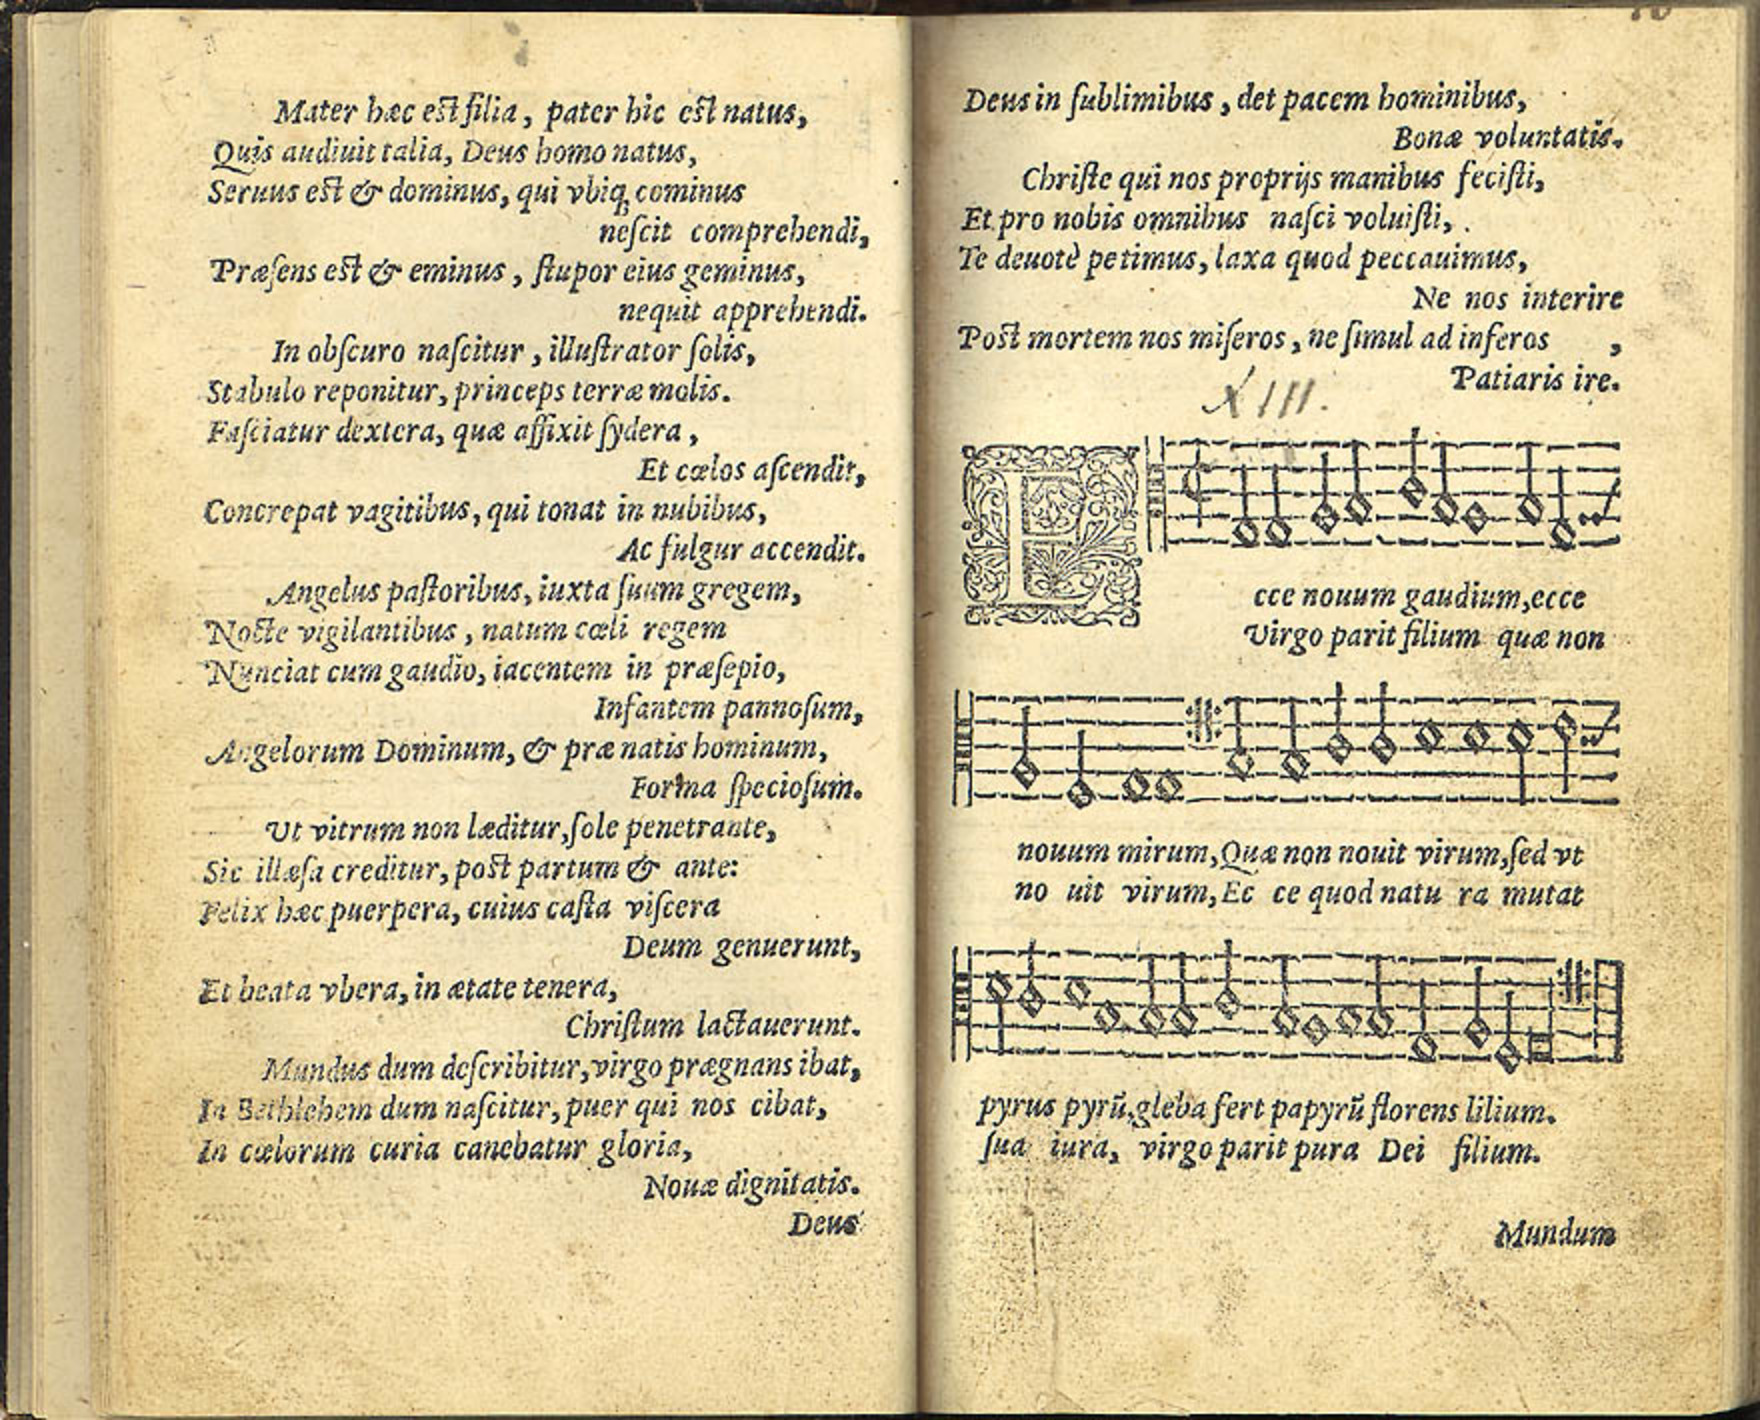 Mater hæc est filia, pater hic est natus,
Quis audiuit talia, Deus homo natus,
Seruus est & dominus, qui vbiq; cominus
neſcit comprehendi,
Præſens est & eminus, ſtupor eius geminus,
nequit apprehendi.
In obſcuro naſcitur, illuſtrator ſolis,
Stabulo reponitur, princeps terræ molis.
Faſciatur dextera, quæ affixit ſydera,
Et cœlos aſcendit,
Concrepat vagitibus, qui tonat in nubibus,
Ac fulgur accendit.
Angelus paſtoribus, iuxta ſuum gregem,
Nocte vigilantibus, natum cœli regem
Nunciat cum gaudio, iacentem in præſepio,
Infantem pannoſum,
Angelorum Dominum, & præ natis hominum,
Forma ſpecioſum.
Ut vitrum non læditur, ſole penetrante,
Sic illæſa creditur, post partum & ante:
Felix hæc puerpera, cuius caſta viſcera
Deum genuerunt,
Et beata vbera, in ætate tenera,
Chriſtum lactauerunt.
Mundus dum deſcribitur, virgo prægnans ibat,
In Bethlehem dum naſcitur, puer qui nos cibat,
In cœlorum curia canebatur gloria,
Nouæ dignitatis.
Deus
Deus in ſublimibus, det pacem hominibus,
Bonæ voluntatis.
Chriſte qui nos proprijs manibus feciſti,
Et pro nobis omnibus naſci voluiſti,
Te deuotè petimus, laxa quod peccauimus,
Ne nos interire
Post mortem nos miſeros, ne ſimul ad inferos ,
Patiaris ire.
XIII.
Ecce nouum gaudium, ecce
Virgo parit filium quæ non
nouum mirum, Quæ non nouit virum, ſed vt
no uit virum, Ec ce quod natu ra mutat
pyrus pyrũ, gleba fert papyrũ florens lilium.
ſua iura, virgo parit pura Dei filium.
Mundum